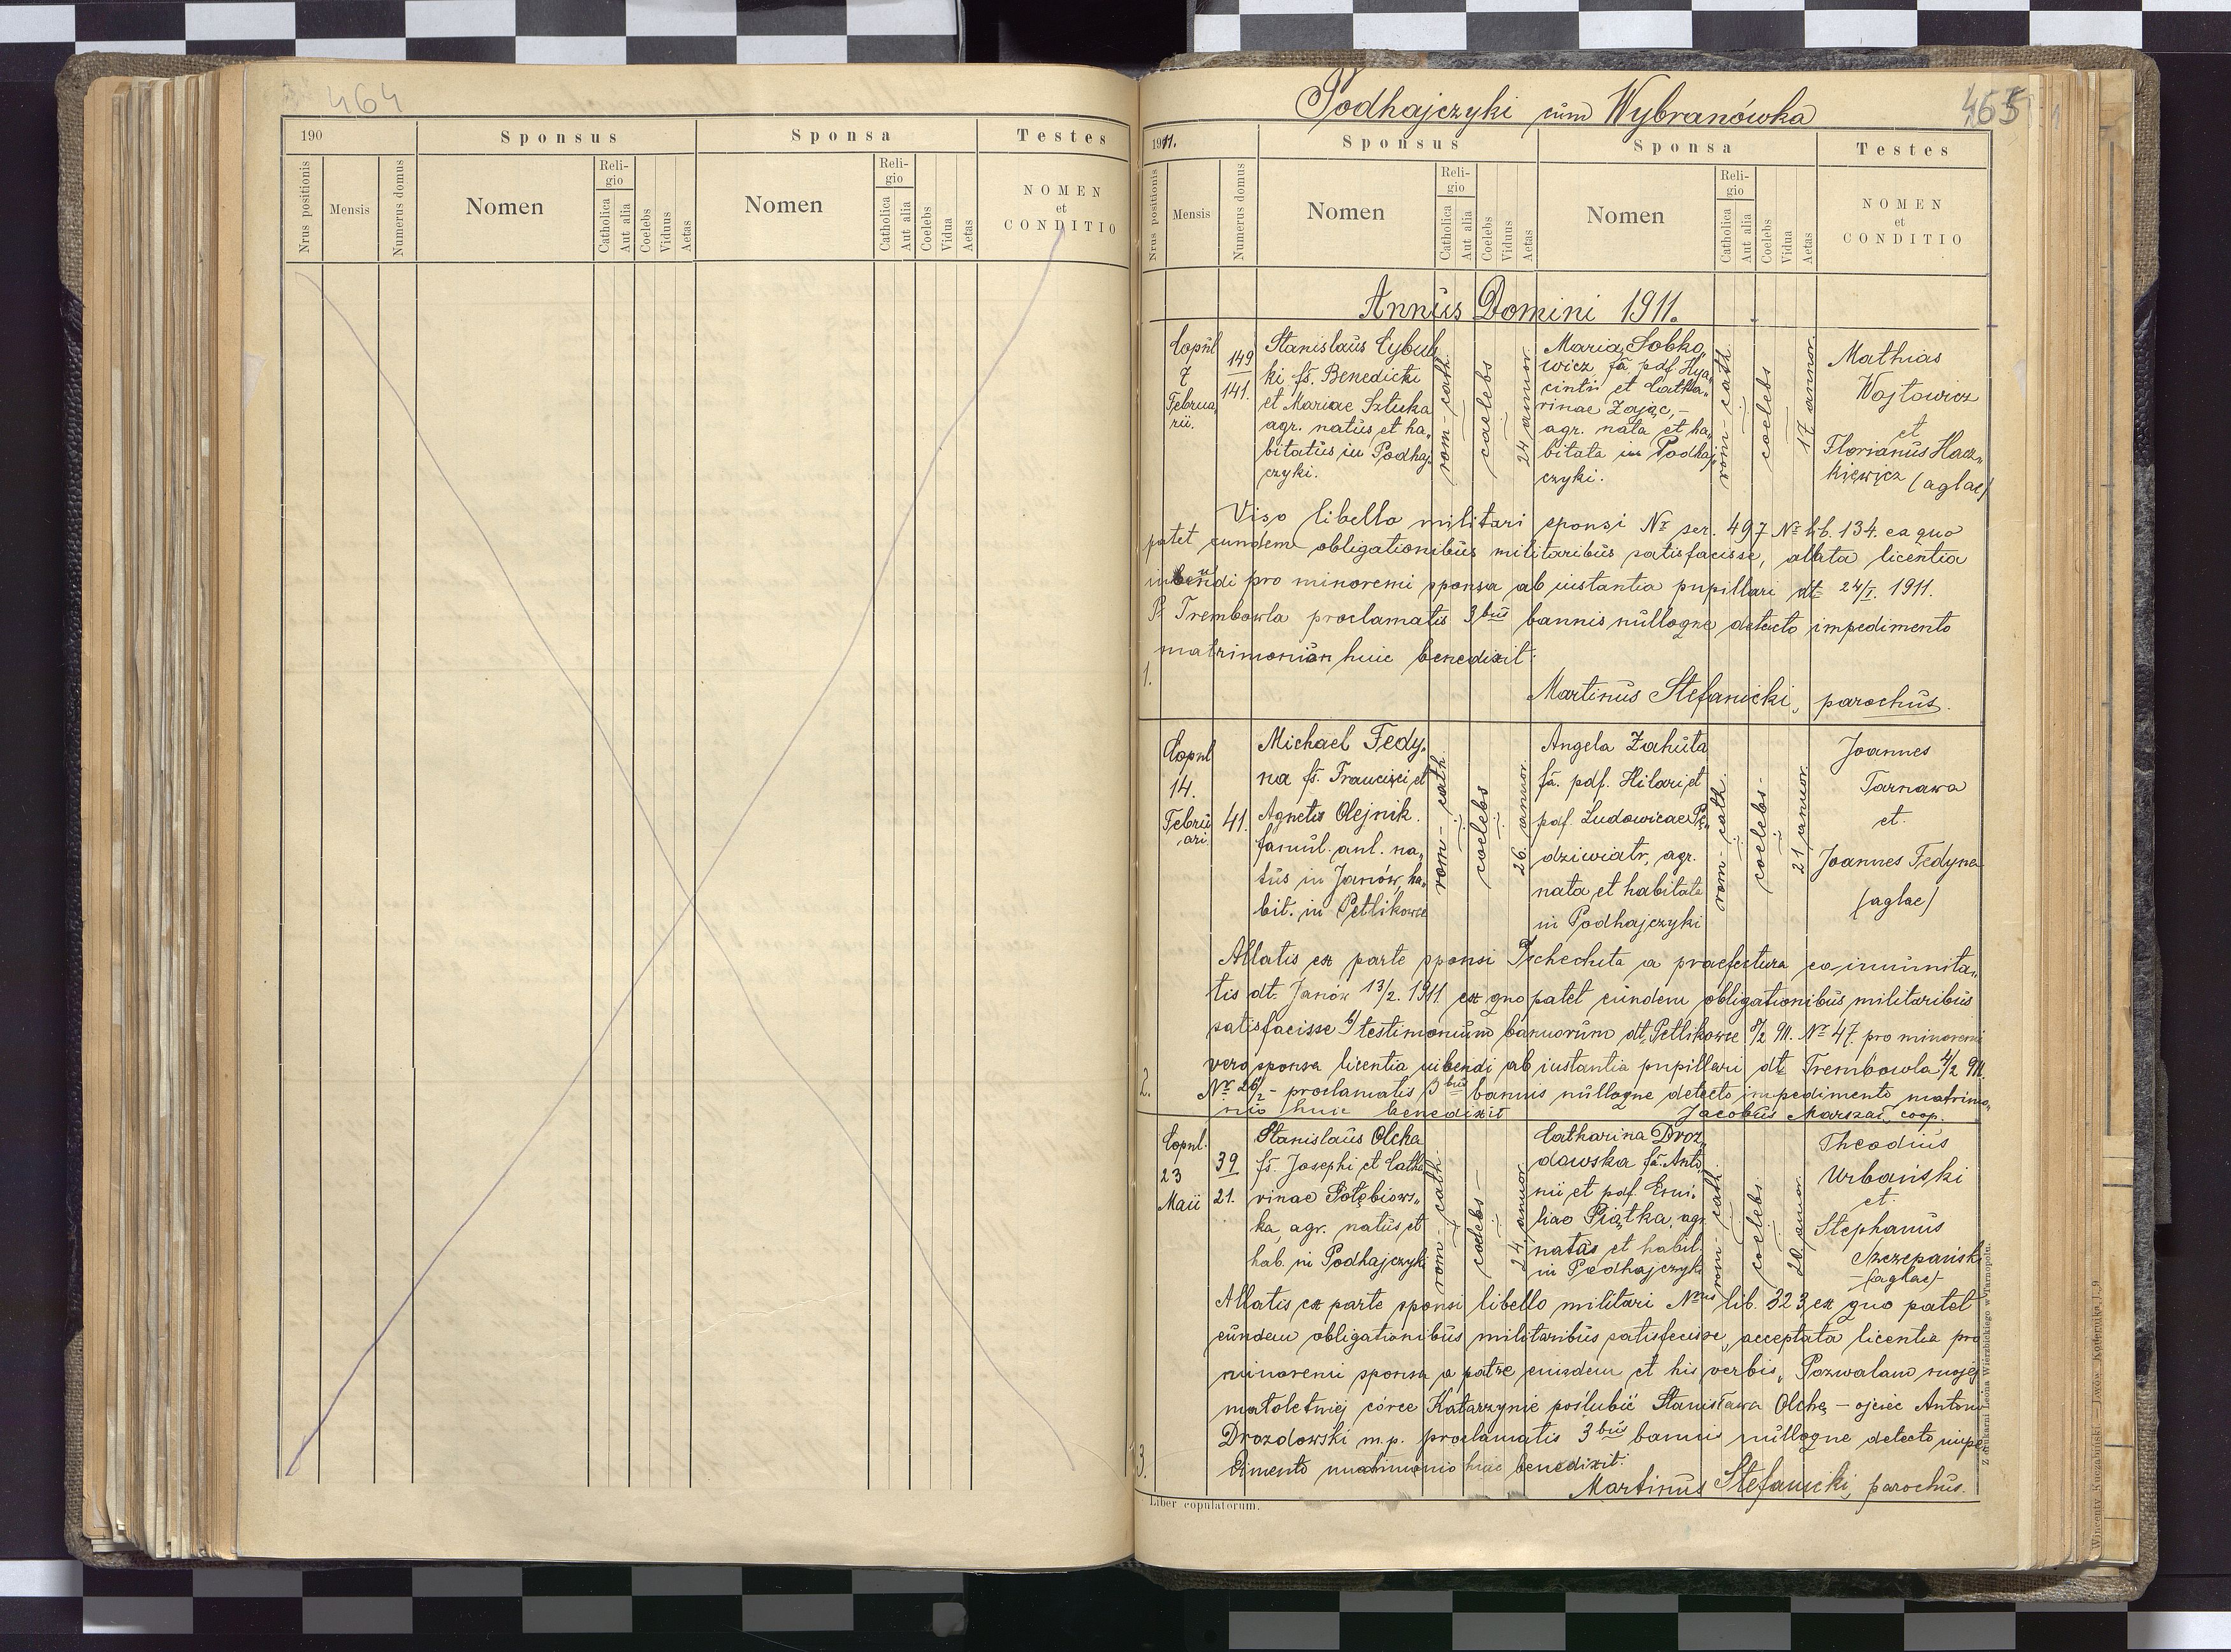 464
190
Sponsus
Sponsa
Testes
Nrus positionis
Mensis
Numerus domus
Nomen
Religio
Catholica
Aut alia
Coelebs
Viduus
Aetas
Nomen
Religio
Catholica
Aut alia
Coelebs
Vidua
Aetas
NOMEN
et
CONDITIO
Podhajczyki cum Wybranówka
465
1911.
Sponsus
Sponsa
Testes
Nrus positionis
Mensis
Numerus domus
Nomen
Religio
Catholica
Aut alia
Coelebs
Viduus
Aetas
Nomen
Religio
Catholica
Aut alia
Coelebs
Vidua
Aetas
NOMEN
et
CONDITIO
Annus Domini 1911.
1.
Copul
7
Februa„
rii.
149
141.
Stanislaus Cybul„
ki fs. Benedicti
et Mariae Sztuka
agr. natus et ha„
bitatus in Podhaj„
czyki.
rom-cath.
coelebs
24 annor.
Maria Sobko„
wicz fa. pdf. Hya„
cintii et Catha„
rinae Zając,-
agr. nata et ha„
bitata in Podhaj„
czyki.
rom-cath.
coelebs
17 annor.
Mathias
Wojtowicz
et
Florianus Hacz„
kiewicz (aglae)
Viso libello militari sponsi Nr ser. 497 Nr lib. 134. ex quo
patet eundem obligationibus militaribus satisfacisse, allata licentia
nubendi pro minoremi sponsa ab instantia pupillari dt 24/I. 1911.
Trembowla proclamatis 3bus bannis nulloque detecto impedimento
matrimonium huic benedixit:
Martinus Stefanicki, parochus.
2.
Copul
14.
Febru
ari.
41.
Michael Fedy„
na fs. Francisci et
Agnetis Olejnik.
famul. anl. na„
tus in Janów, ha„
bit. in Petlikowce
rom-cath.
coelebs
26. annor.
Angela Zahuta
fa. pdf. Hilari et
pdf. Ludowicae Pę„
dziwiatr, agr.
nata et habitata
in Podhajczyki
rom-cath.
coelebs-
21 annor.
Joannes
Tarnawa
et.
Joannes Fedyna
(aglae)
Allatis ex parte sponsi a praefectura
tis dt. Janów 13/2. 1911 ex quo patet eundem obligationibus militaribus
satisfacisse b/ testimonium bannorum dt. Petlikowce 8/2 911. Nr 47. pro minoremi
vero sponsa licentia nubendi ab instantia pupillari dt Trembowla 4/2 911.
Nr 26/2 - proclamatis 3bus bannis nulloque detecto impedimento matrimo„
nio huic benedixit Jacobus Marszał, coop.
3.
Copul.
23
Maii
39
21.
Stanislaus Olcha
fs. Josephi et Catha
rinae Gołębiows„
ka, agr. natus et
hab. in Podhajczyki
rom-cath.
coelebs-
24 annor.
Catharina Droz„
dowska fa. Anto„
nii et pdf. Emi„
liae Piątka, agr.
natas et habit.
in Podhajczyki
rom-cath.
coelebs.
20 annor.
Theodius
Urbański
et
Stephanus
Szczepański
-(aglae)-
Allatis ex parte sponsi libello militari Nrus lib. 323 ex quo patet
eundem obligationibus militaribus satisfecisse, acceptata licentia pro
minoremi sponsa a patre eiusdem et his verbis „Pozwalam mojej
małoletniej córce Katarzynie poślubić Stanisława Olchę - ojciec Antoni
Drozdowski m.p. proclamatis 3bus bannis nulloque detecto impe
dimento matrimonio huic benedixit.
Martinus Stefanicki, parochus.
Liber copulatorum.
Z drukarni Leona Wierzbickiego w Tarnopolu.
Wincenty Kuczabiński — Lwów, Kopernika l. 9